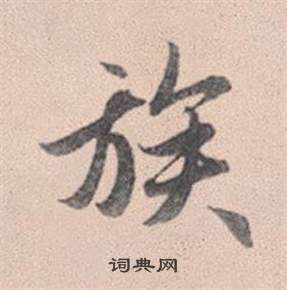 族
词典网